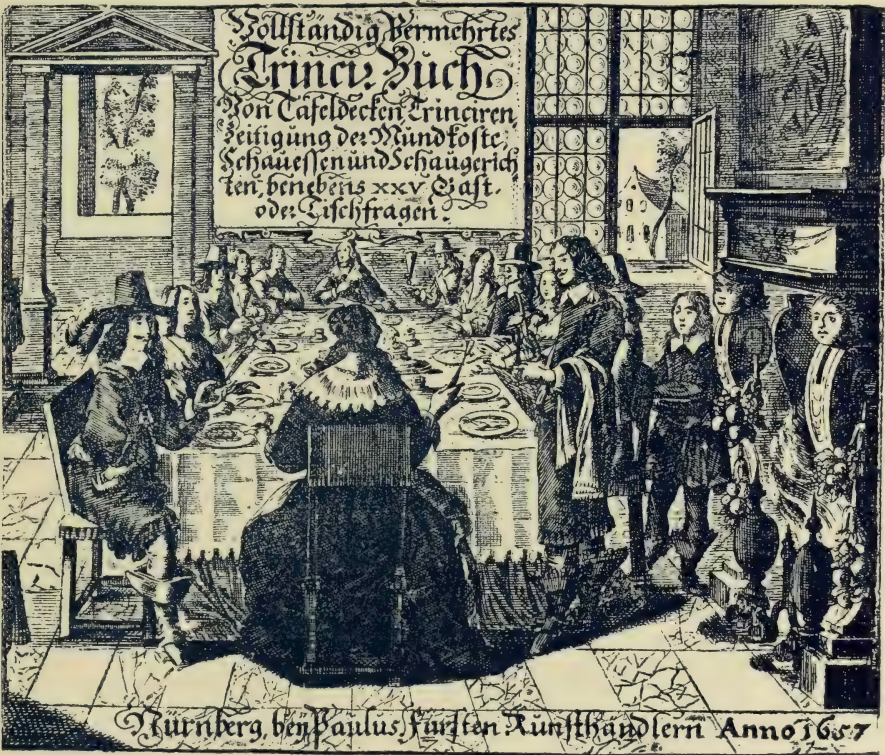 Vollständig Vermehrtes
Trincir-Buch,
Von Tafeldecken Trinciren,
Zeitigung der Mundkoste,
Schauessen und Schaugerich
ten, benebens XXV Gast-
oder Tischfragen.
Nürnberg, beÿ Paulus Fürsten Kunsthändlern Anno 1657